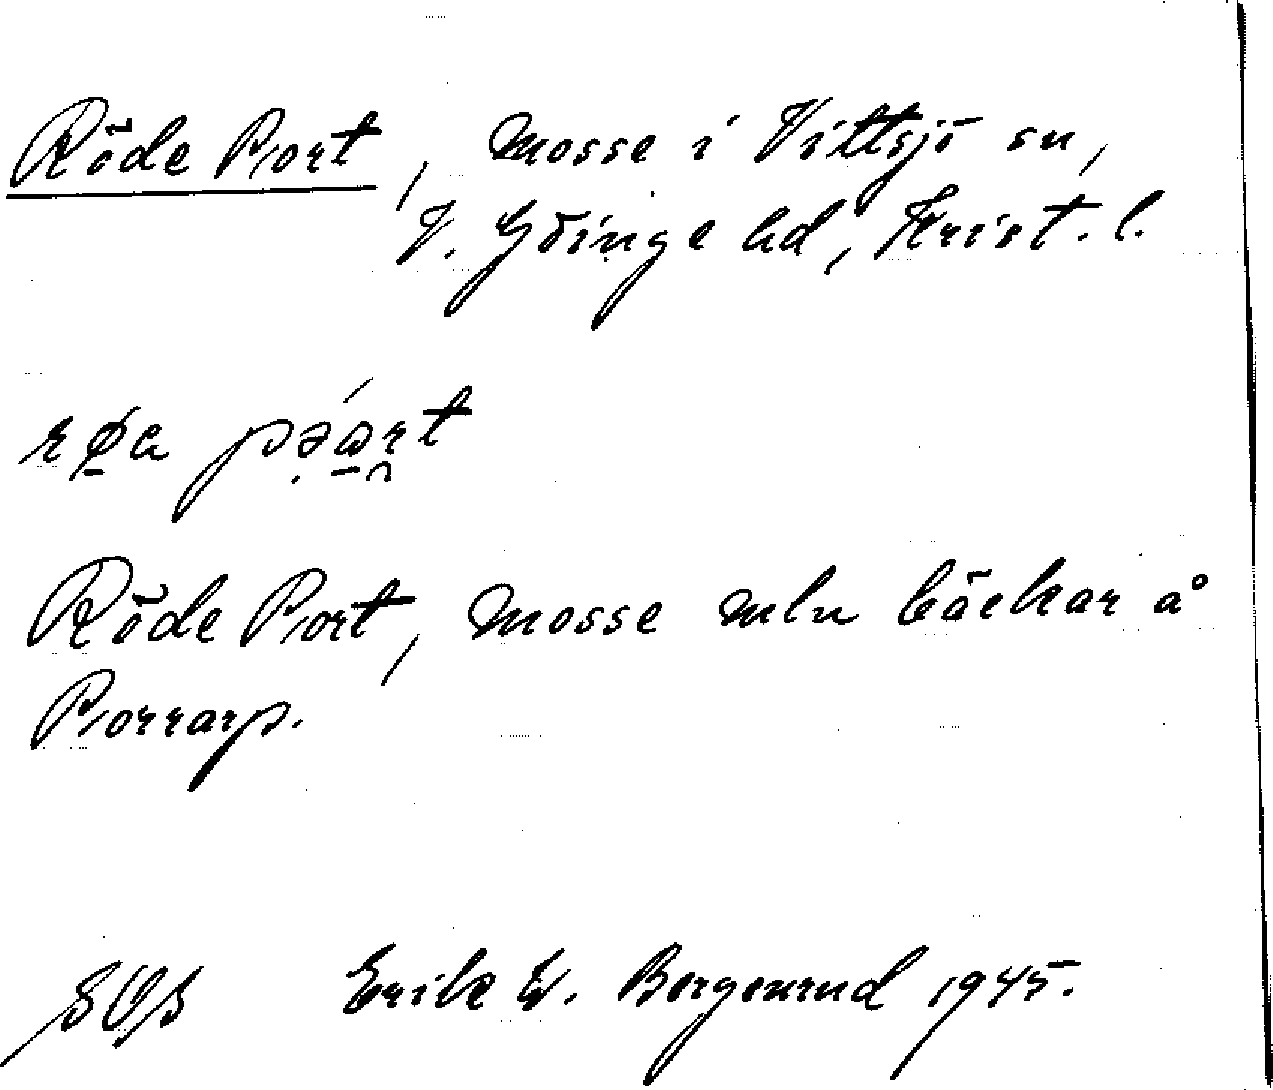 Röde Port, Mosse i Vittsjö sn,
V. Göinge hd, Krist. l.
røa pə́art
Röde Port, Mosse mln bäckar å
Porrarp.
Erik W. Bergenrud 1945.